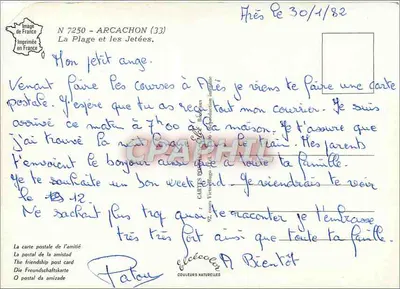 Image de France
Imprimée en France
N 7250 - ARCACHON (33)
La Plage et les Jetées.
Arès le 30/1/82
Mon petit ange.
Venant faire les courses à Arès je viens te faire une carte
postale. J'espère que tu as reçu tout mon courrier. Je suis
arrivé ce matin à 7h00 à la maison. Je t'assure que
j'ai trouvé la nuit le train. Mes parents
t'envoient le bonjour ainsi que à toute ta famille.
Je te souhaite un bon week end. Je viendrais te voir
le 12
Ne sachant plus trop quoi te raconter je t'embrasse
très très fort ainsi que toute ta famille.
A Bientôt
Patou
La carte postale de l'amitié
La postal de la amistad
The friendship post card
Die Freundschaftskarte
O postal da amizade
elcécolor
COULEURS NATURELLES
CPAPHIL